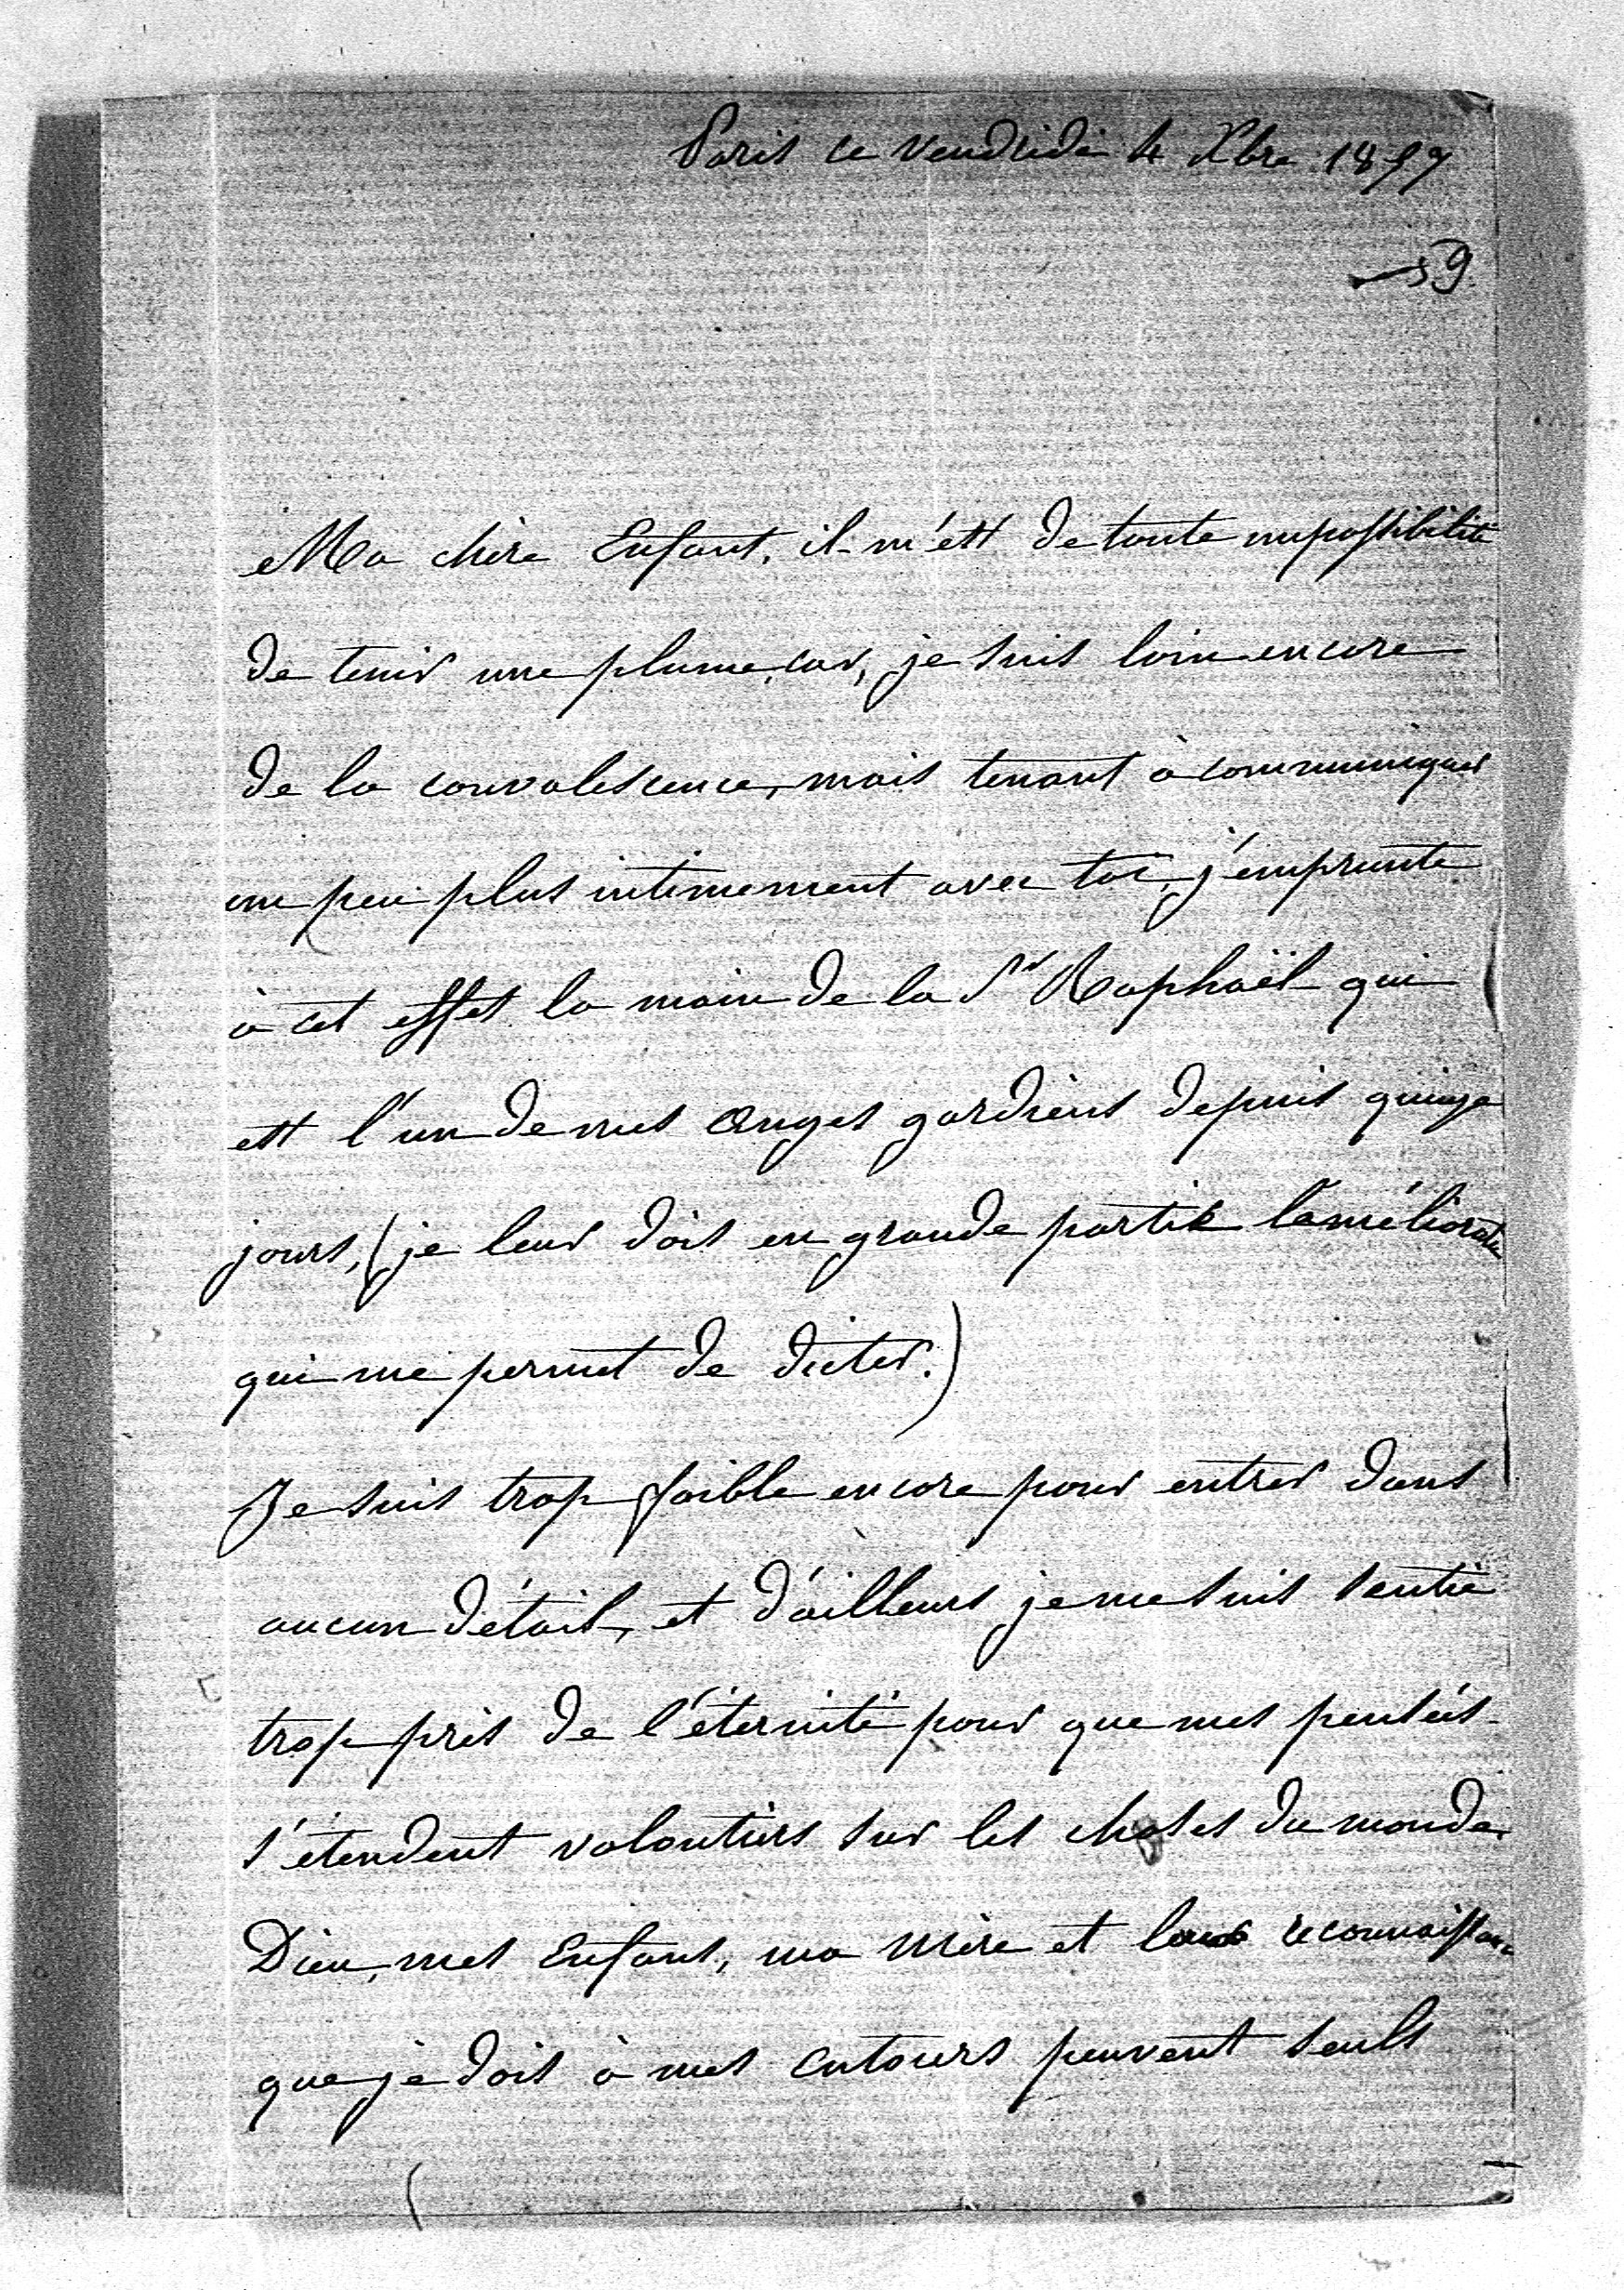 Paris ce vendredi 4 Xbre
59
Ma chère Enfant, il m'est de toute impossibilité
de tenir une plume, car, je suis loin encore
de la convalescence, mais tenant à communiquer
un peu plus intimement avec toi, j'emprunte
à cet effet la main de la Sr Raphaël qui
est l'un de mes Anges gardiens depuis quinze
jours, (je leur dois en grande partie l'amélioration
qui me permet de dicter.)
Je suis trop faible encore pour entrer dans
aucun détail, et d'ailleurs je me suis sentie
trop près de l'éternité pour que mes pensées
s'étendent volontiers sur les choses du monde.
Dieu, mes Enfants, ma Mère et la reconnaissance
que je dois à mes entours peuvent seuls